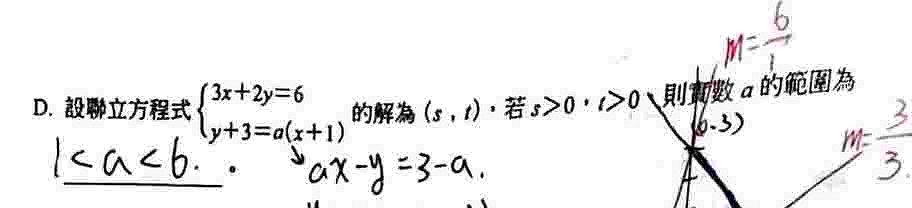 m=6/1
D. 設聯立方程式{3x+2y=6 y+3=a(x+1) 的解為 (s,t),若 s>0,t>0,則實數 a 的範圍為
(0.3)
m=3/3.
1<a<6.
ax-y=3-a.